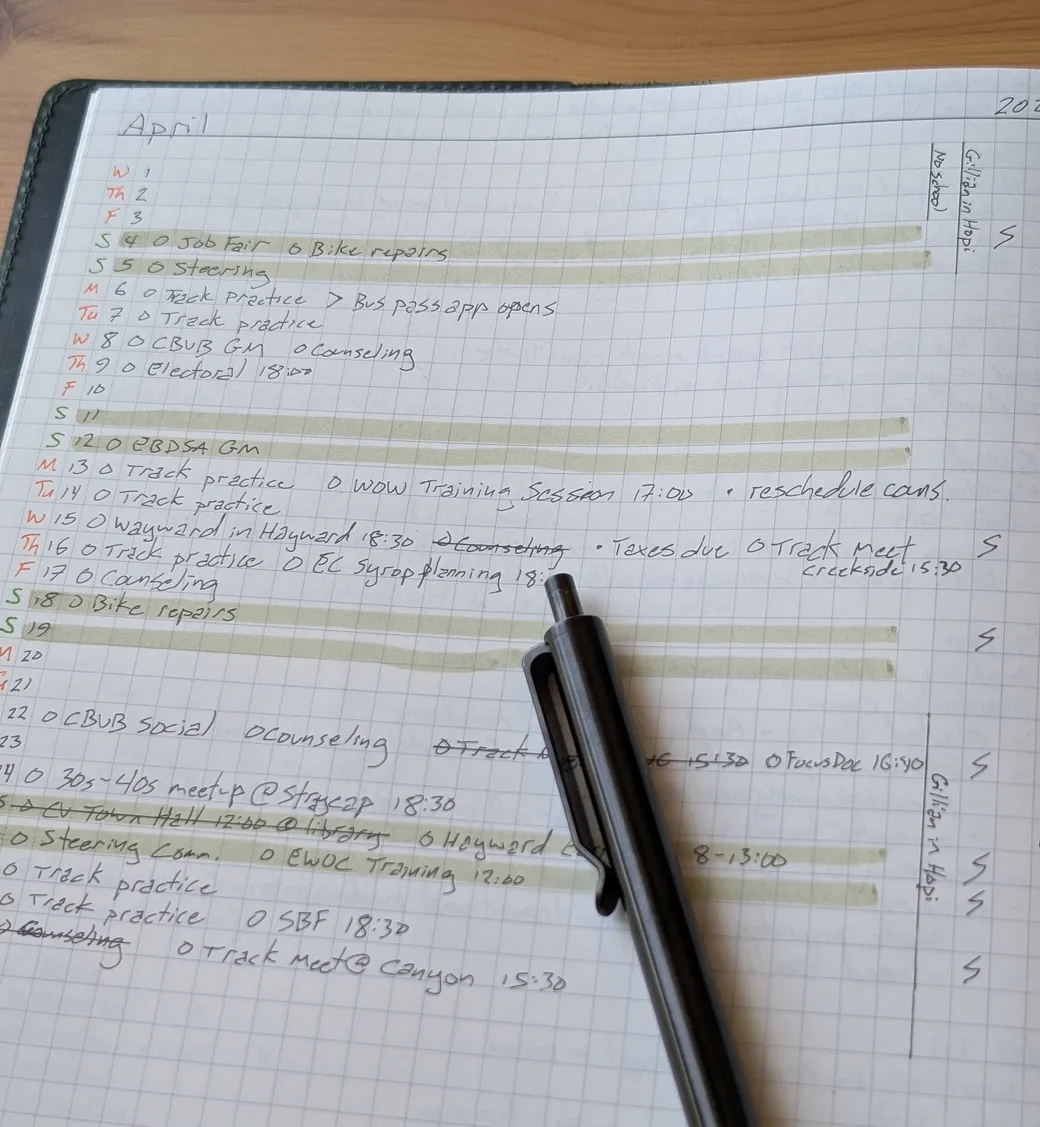 April
202
W 1
Th 2
F 3
S 4 o Job Fair o Bike repairs
S 5 o Steering
M 6 o Track Practice > Bus pass app opens
Tu 7 o Track practice
W 8 o CBUB GM o Counseling
Th 9 o Electoral 18:00
F 10
S 11
S 12 o EBDSA GM
M 13 o Track practice o WOW Training Session 17:00 • reschedule couns.
Tu 14 o Track practice
W 15 o Wayward in Hayward 18:30 o Counseling • Taxes due o Track Meet
Creekside 15:30
Th 16 o Track practice o EC Syrop planning 18:
F 17 o Counseling
S 18 o Bike repairs
S 19
M 20
21
22 o CBUB Social o Counseling o Track 15:30 o FocusDoc 16:40
23
4 o 30s-40s meet-up @ Strayscap 18:30
o CV Town Hall 12:00 @ library o Hayward 8-13:00
o Steering Comm. o EWOC Training 12:00
o Track practice
o Track practice o SBF 18:30
o Counseling o Track Meet @ Canyon 15:30
No school
Gillian in Hopi
Gillian in Hopi